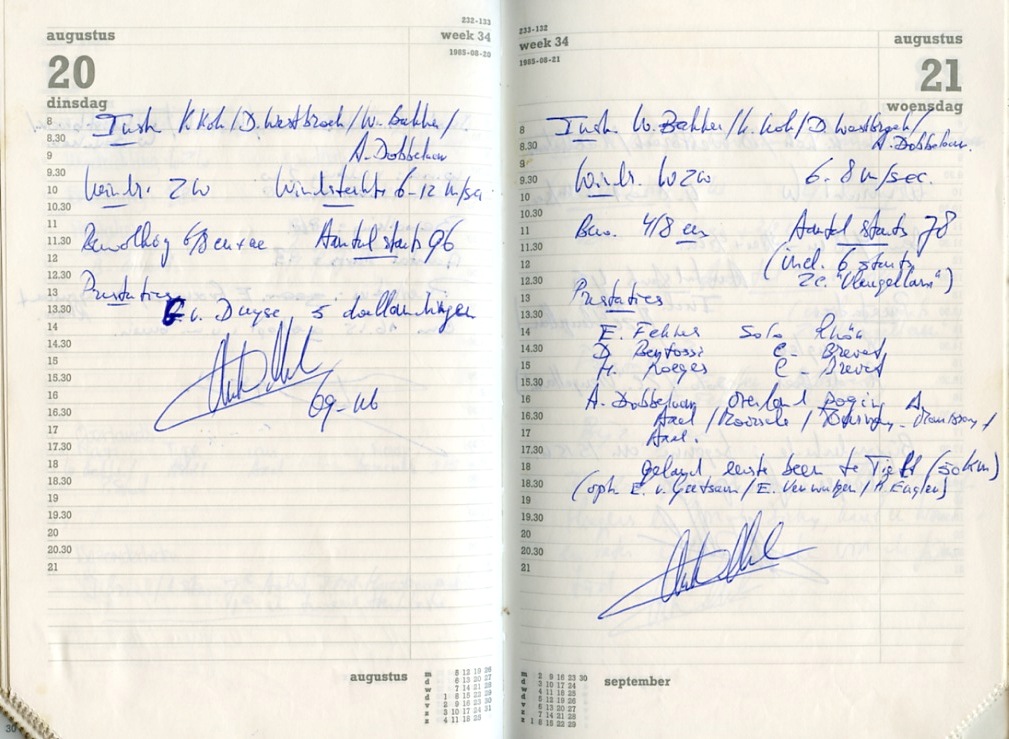 232-133
augustus
week 34
1985-08-20
20
dinsdag
8
8.30
9
9.30
10
10.30
11
11.30
12
12.30
13
13.30
14
14.30
15
15.30
16
16.30
17
17.30
18
18.30
19
19.30
20
20.30
21
Instr. K.Kok/D.Westbroek/W.Bakker/
A.Dobbelaar
Windr. ZW Windsterkte 6-12 m/sec
Bewolking 6/8 en Aantal starts 96
Prestaties
v. Duyse 5 dallandingen
augustus
m 5 12 19 26
d 6 13 20 27
w 7 14 21 28
d 1 8 15 22 29
v 2 9 16 23 30
z 3 10 17 24 31
z 4 11 18 25
233-132
week 34
augustus
1985-08-21
21
woensdag
8
8.30
9
9.30
10
10.30
11
11.30
12
12.30
13
13.30
14
14.30
15
15.30
16
16.30
17
17.30
18
18.30
19
19.30
20
20.30
21
Instr. W.Bakker/K.Kok/D.Westbroek/
A.Dobbelaar.
Windr. WZW 6-8 m/sec.
Bew. 4/8 Aantal starts 78
(incl. 6 starts
Prestaties
E. Solo Rhön
D. C- Brevet
H. C- Brevet
A. Dobbelaar overland poging
Axel /
Axel.
geland eerste been te Tielt (50km)
(oph. E. v. / E. /
m 2 9 16 23 30
d 3 10 17 24
w 4 11 18 25
d 5 12 19 26
v 6 13 20 27
z 7 14 21 28
z 1 8 15 22 29
september